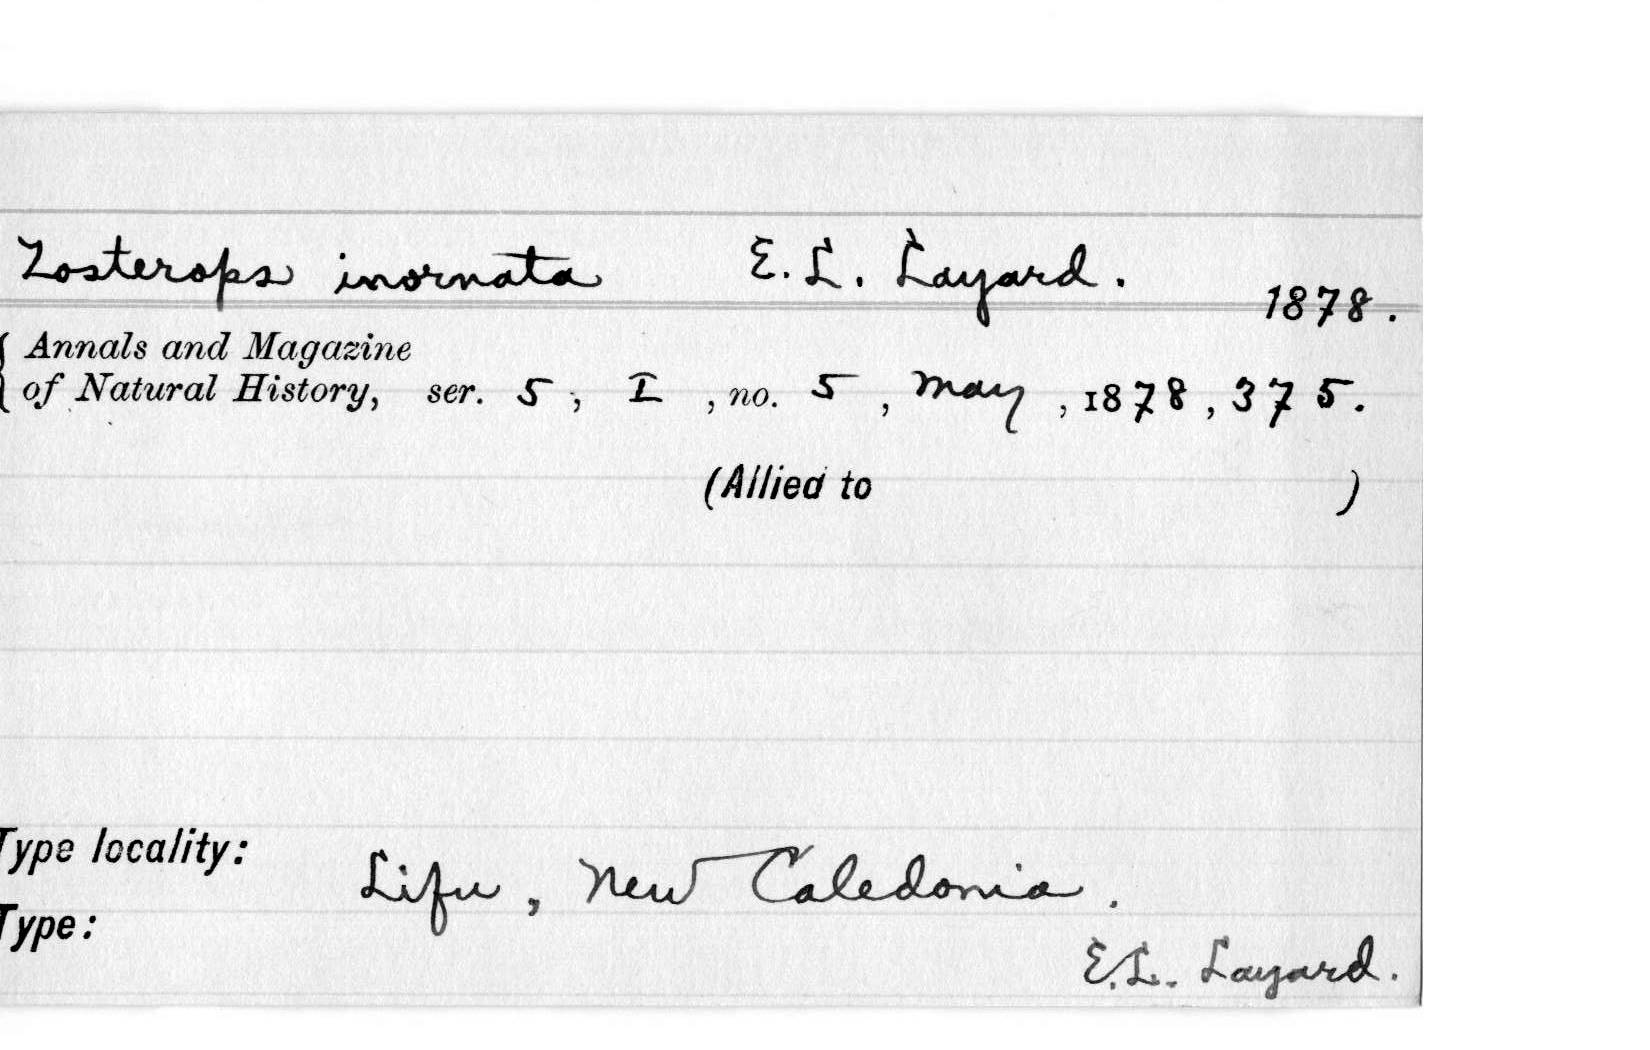 Zosterops inornata E. L. Layard.
1878.
Annals and Magazine
of Natural History, ser. 5, I, no. 5, May, 1878, 375.
(Allied to )
Type locality:
Lifu, New Caledonia.
Type:
E.L. Layard.